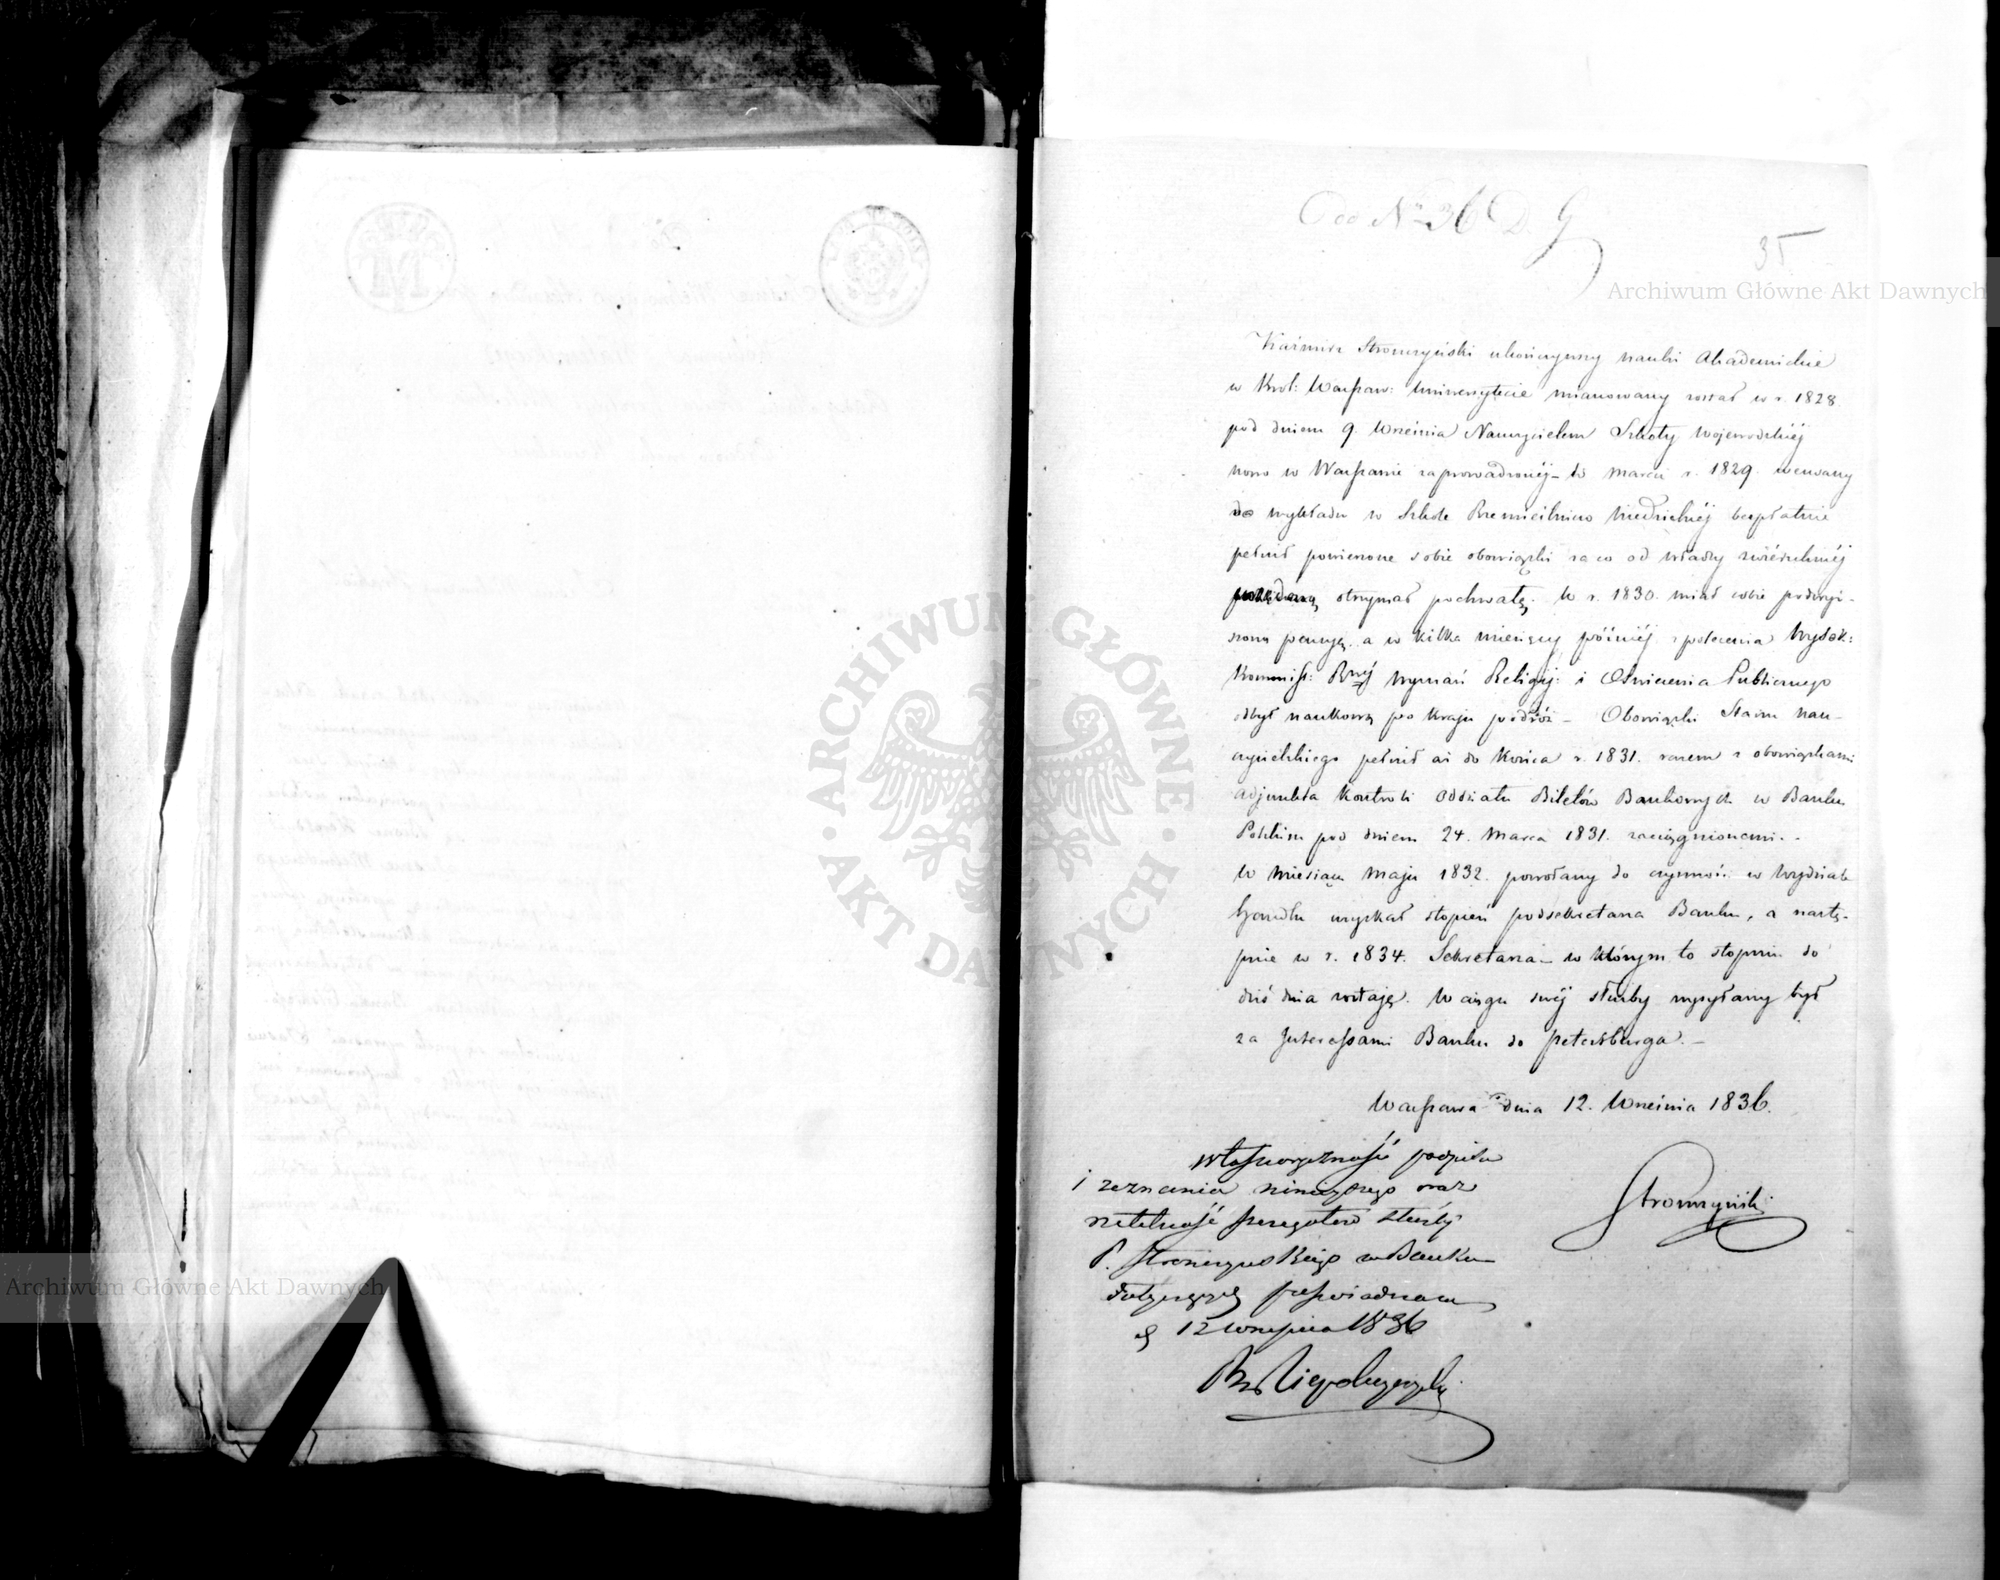 do Nr 36 D. G
35
Archiwum Główne Akt Dawnych
Kaźmirz Stronczyński ukończywszy nauki Akademickie
w Król: Warszaw: Uniwersytecie mianowany został w r. 1828
pod dniem 9. Września Nauczycielem Szkoły Wojewodzkiéj
nowo w Warszawie zaprowadzonéj – w marcu r. 1829. wezwany
do wykładu w Szkole Rzemieślniczo Niedzielnéj bezpłatnie
pełnił powierzone sobie obowiązki za co od władzy zwierzchniéj
otrzymał pochwałę. W r. 1830. miał sobie podwyż-
szoną pensyą, a w kilka miesięcy późniéj z polecenia Wysok:
Kommiss: Rząd: Wyznań Religij: i Oświecenia Publicznego
odbył naukową po kraju podróż – Obowiązki Stanu nau-
czycielskiego pełnił aż do końca r. 1831. razem z obowiązkami
adjunkta Kontroli Oddziału Biletów Bankowych w Banku
Polskim pod dniem 24. Marca 1831. zaciągnionemi. –
W miesiącu Maju 1832. powołany do czynności w Wydziale
Handlu uzyskał stopień podsekretarza Banku, a nastę-
pnie w r. 1834. Sekretarza – w którym to stopniu do
dziś dnia zostaję. W ciągu swéj służby wysyłany był
za Interessami Banku do Petersburga. –
Warszawa dnia 12. Września 1836.
Stronczyński
Własnoręczność podpisu
i zeznania niniejszego oraz
rzetelność szczegółów służby
P. Stronczyńskiego w Banku
dotyczących poświadczam
d 12 Września 1836
ARCHIWUM GŁÓWNE
AKT DAWNYCH
Archiwum Główne Akt Dawnych